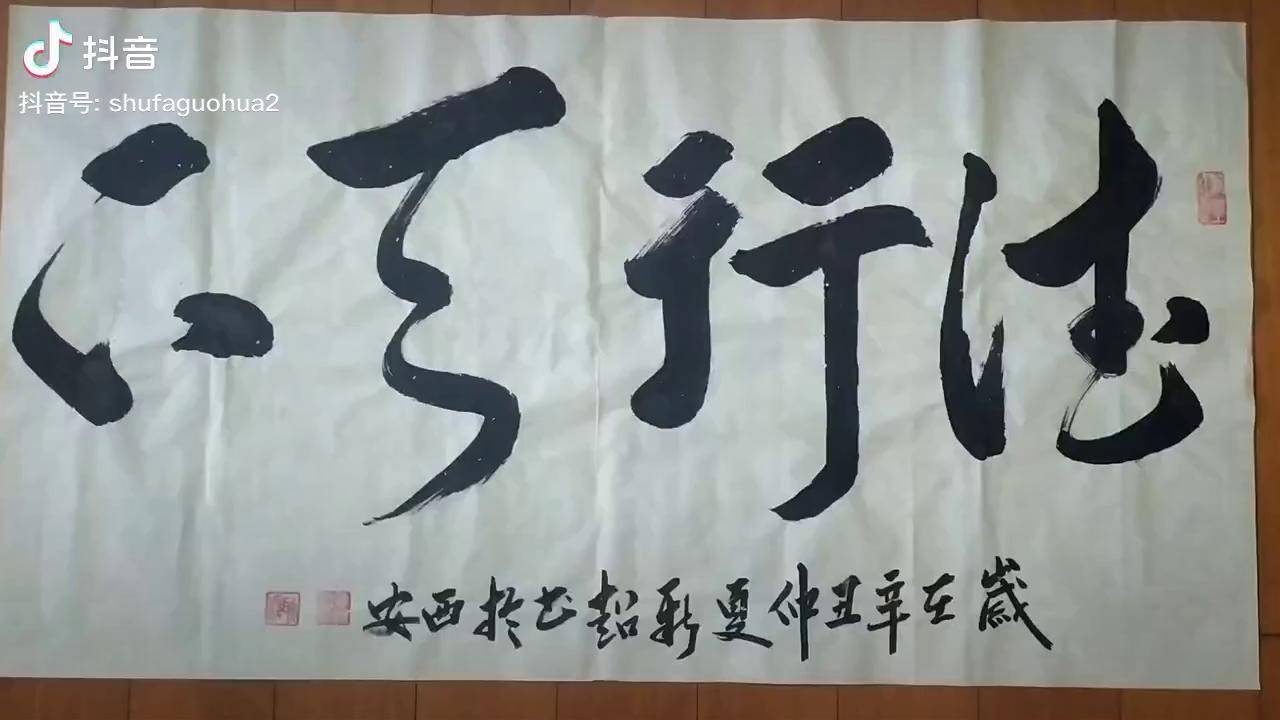 抖音
抖音号: shufaguohua2
德行天下
歲在辛丑仲夏新超书於西安